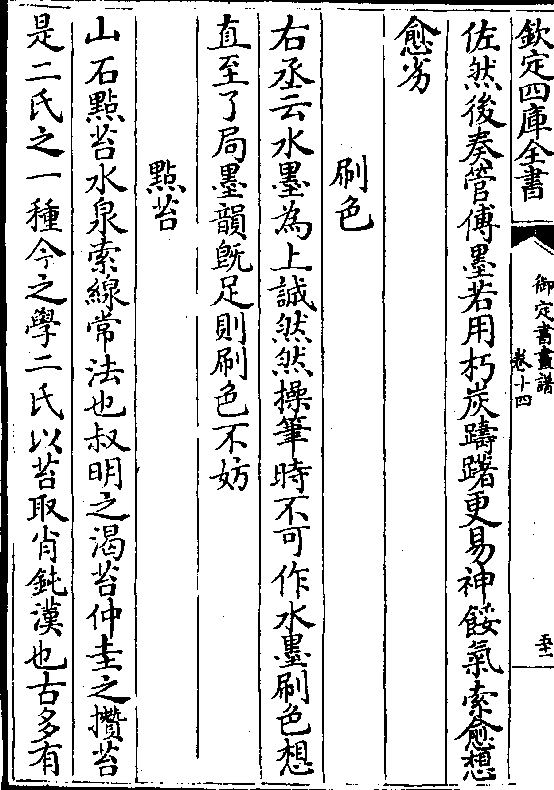 欽定四庫全書
御定書畫譜
卷十四
至
佐然後奏管傅墨若用朽炭躊躇更易神餒氣索愈想
愈劣
刷色
右丞云水墨為上誠然然操筆時不可作水墨刷色想
直至了局墨韻既足則刷色不妨
點苔
山石點苔水泉索線常法也叔明之渴苔仲圭之攢苔
是二氏之一種今之學二氏以苔取肖鈍漢也古多有